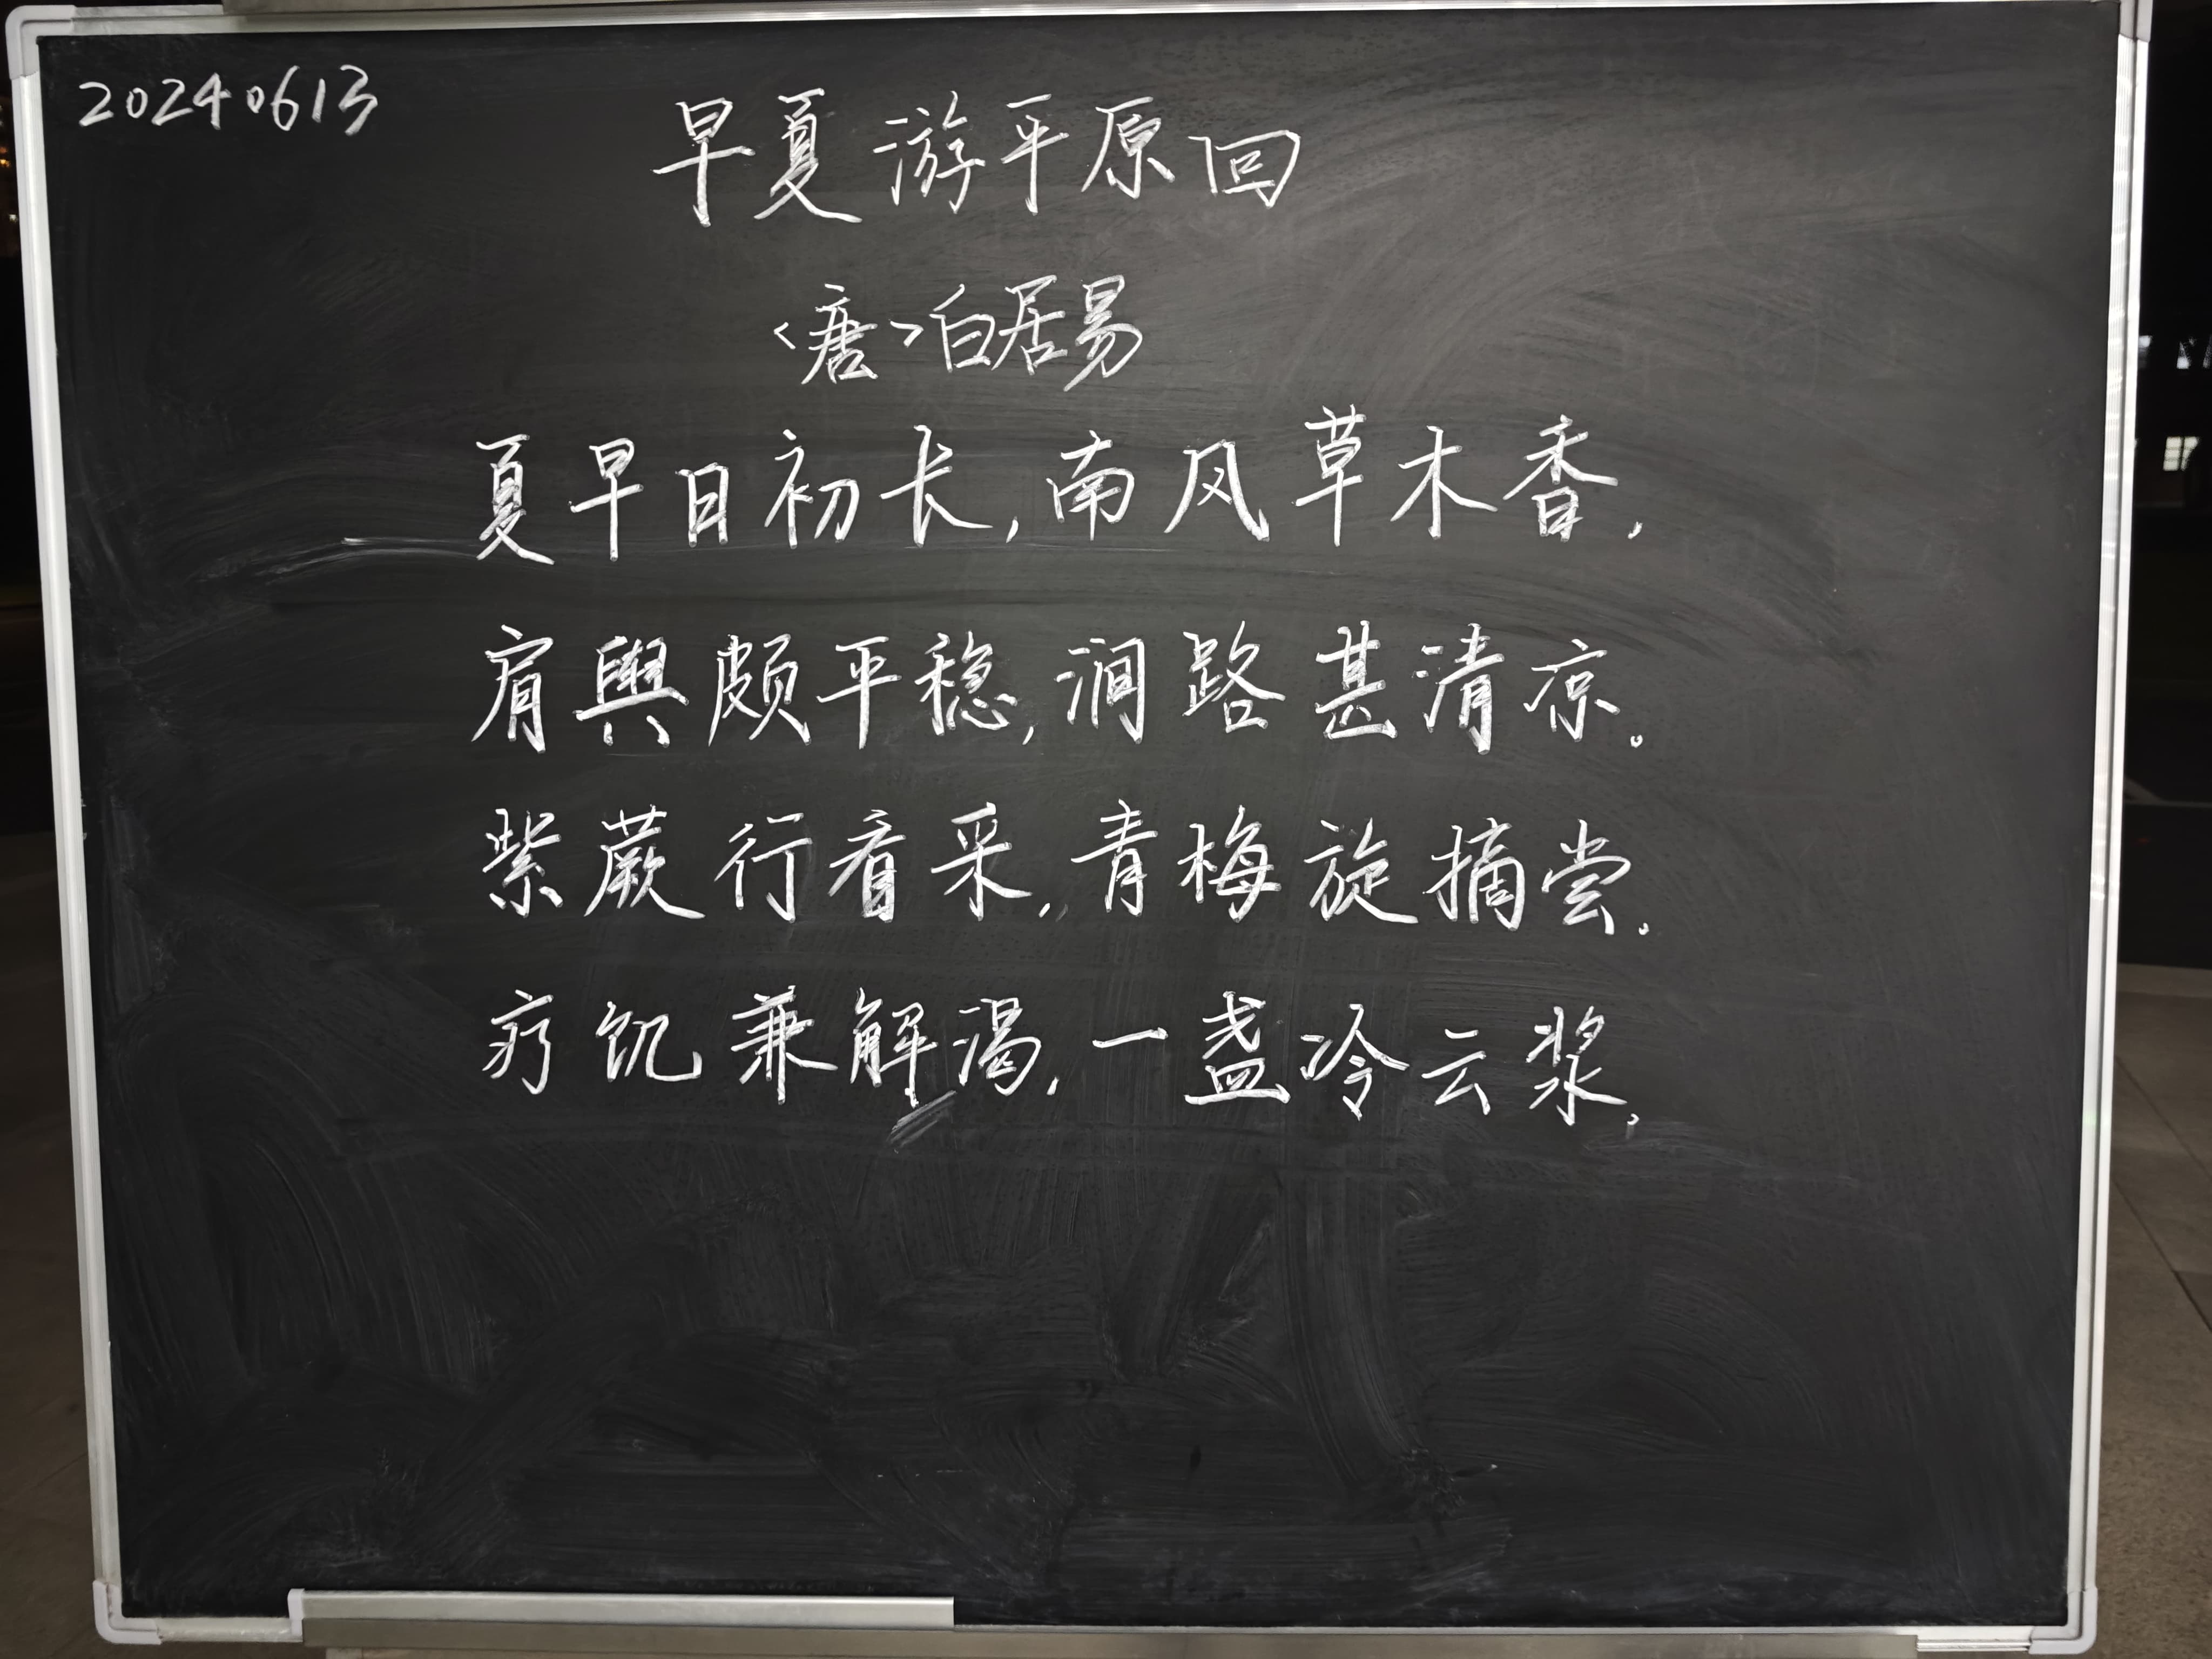 20240613
早夏游平原回
<唐>白居易
夏早日初长,南风草木香,
肩舆颇平稳,涧路甚清凉。
紫蕨行看采,青梅旋摘尝.
疗饥兼解渴,一盏冷云浆,